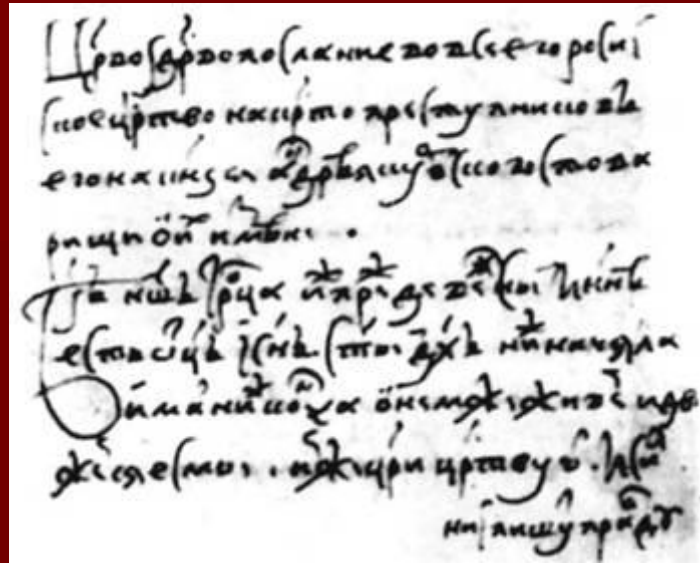 Црво гдрво послание во все его роси
ское цртво на крто престꙋпников
его на кнзя андрѣя курбского с това
рищи ѡ их измѣне.
Бъ ншъ трца иже преже век сыи и ннѣ
есть ѡцъ и снъ и стыи дхъ ниже начала
имат ниже конца ѡ нем же живем и дви
жемся есмы. имже цри цртвуют. и сил
нии пишут правду